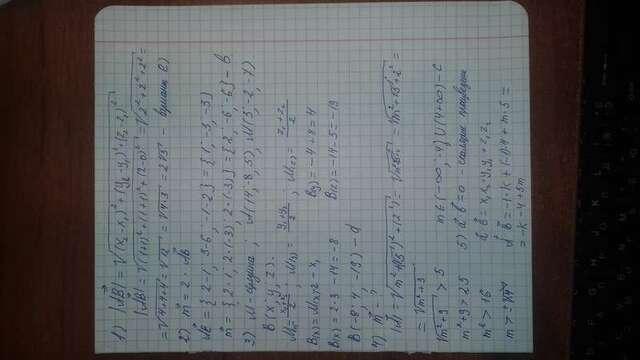 1) |AB| = √(x₂-x₁)² + (y₂-y₁)² + (z₂-z₁)²
|AB| = √(1+1)² + (1+1)² + (2-0)² = √2²+2²+2² =
= √4+4+4 = √12 = √4·3 = 2√3 - вариант C)
2) m = 2 · AB
AB = {2-1; 3-6; -1-2} = {1; -3; -3}
m = {2·1; 2·(-3); 2·(-3)} = {2; -6; -6} - B
3) M - середина; A(14; -8; 5), M(3; -2; -7)
B(x; y; z).
M(x) = x₁+x₂/2; M(y) = y₁+y₂/2; M(z) = z₁+z₂/2
B(x) = M(x)·2 - x₁ B(y) = -4+8 = 4
B(x) = 2·3 - 14 = -8 B(z) = -14-5 = -19
B(-8; 4; -19) - d
4) m - ?
= √m²+9
√m²+9 > 5 m∈(-∞; -4)∪(4+∞) - C
m²+9 > 25 5) a·b = 0 - скалярн произведение
m² > 16 a·b = x₁x₂+y₁y₂+z₁z₂
m > ±√4 a·b = -1·k + (-1)·4 + m·5 =
= -k - 4 + 5m